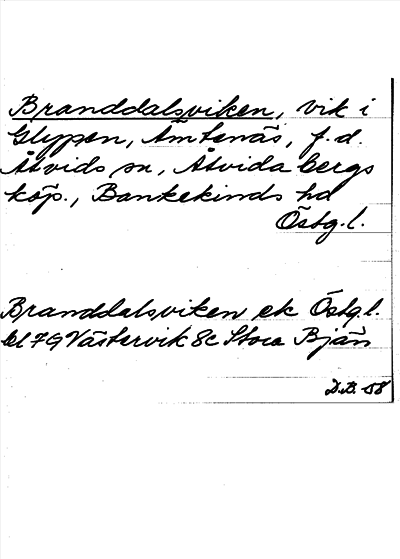 Branddalsviken, vik i
Glypen, Åmtenäs, f.d.
Åtvids sn, Åtvidabergs
köp., Bankekinds hd
Östg.l.
Branddalsviken ek Östg.l.
bl 79 Västervik 8c Stora Bjän
D.B. 58